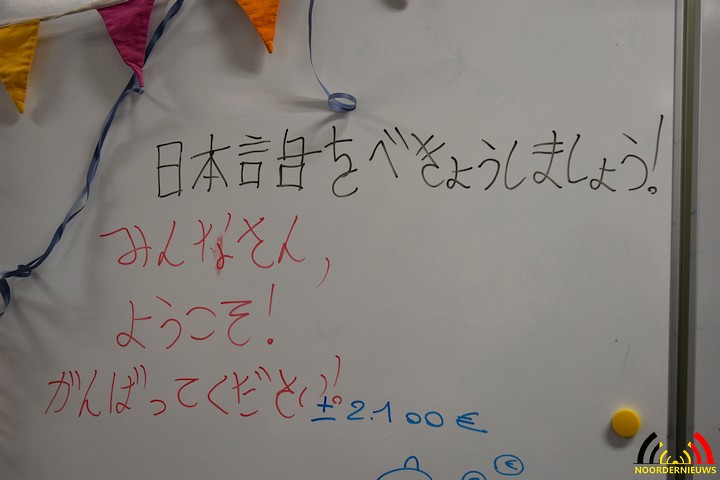 日本語をべきょうしましょう!
みんなさん,
ようこそ!
がんばってください!
± 2.100 €
€
NOORDERNIEUWS